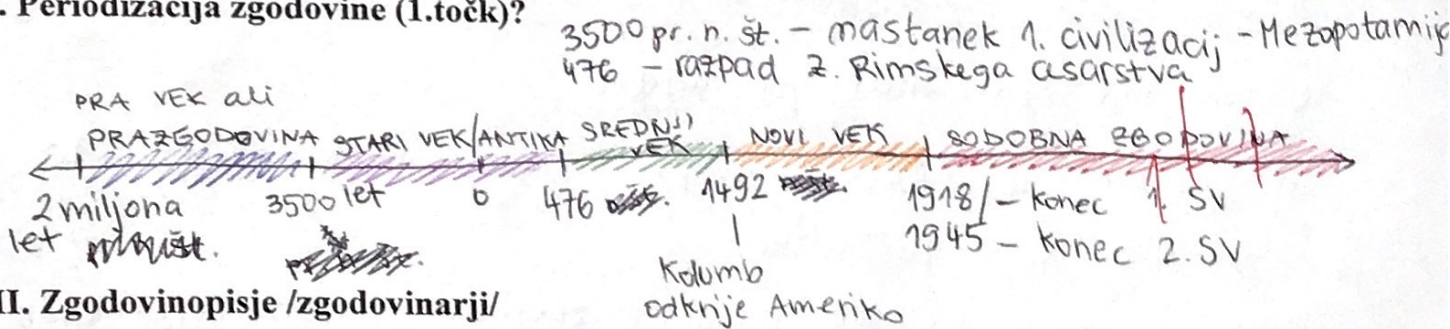 . Periodizacija zgodovine (1.točk)?
3500 pr. n. št. - nastanek 1. civilizacij - Mezopotamija
476 - razpad Z. Rimskega cesarstva
PRA VEK ali
PRAZGODOVINA STARI VEK/ANTIKA SREDNJI VEK NOVI VEK SODOBNA ZGODOVINA
2 miljona let 3500 let 0 476 1492 1918/ - konec 1. SV
1945 - konec 2. SV
Kolumb
odkrije Ameriko
II. Zgodovinopisje /zgodovinarji/